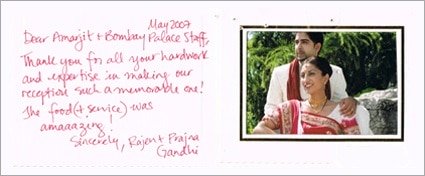 May 2007
Dear Amarjit + Bombay Palace Staff,
Thank you for all your hardwork
and expertise in making our
reception such a memorable one!
The food (+ service) was
amaaazing!
Sincerely, Rajen + Prajna
Gandhi